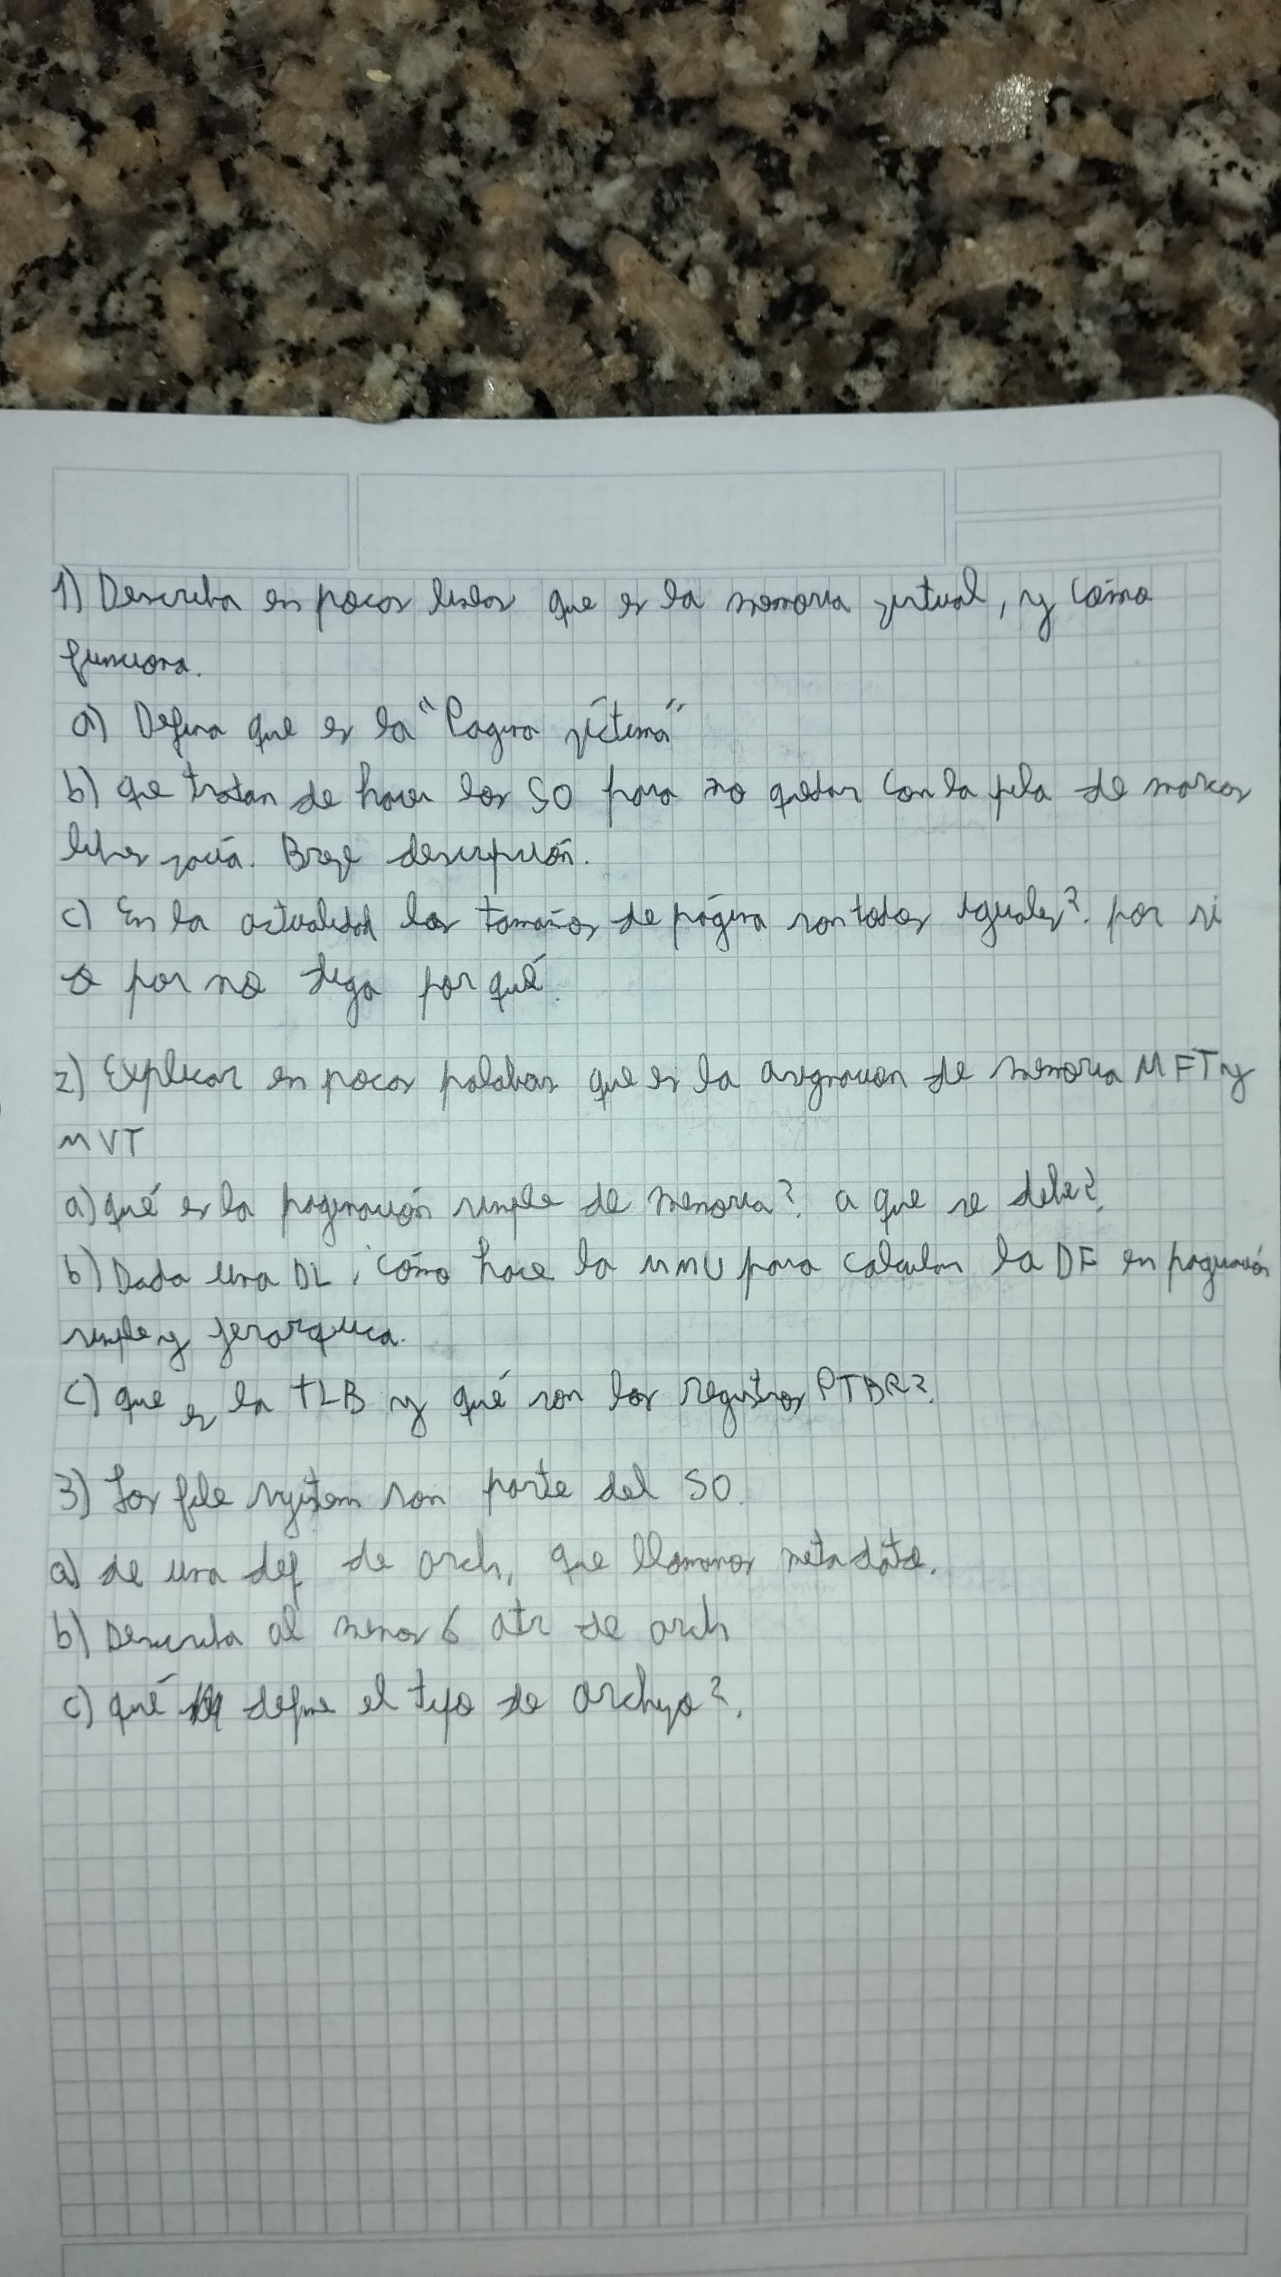 1) Describa en pocas lineas que es la memoria virtual, y cómo
funciona.
a) Defina que es la "Pagina víctima"
b) que tratan de hacer los SO para no quedar con la fila de marcos
libres vacía. Breve descripción.
c) En la actualidad los tamaños de página son todos iguales? por si
o por no diga por qué.
2) Explicar en pocas palabras que es la asignacion de memoria MFT y
MVT
a) qué es la paginación simple de memoria? a que se debe?
b) Dada una DL, cómo hace la MMU para calcular la DF en paginación
simple y jerarquica.
c) que es la TLB y qué son los registros PTBR?
3) Los file system son parte del SO.
a) de una def. de arch, que llamamos metadato.
b) Describa al menos 6 atr de arch
c) qué define el tipo de archivo?